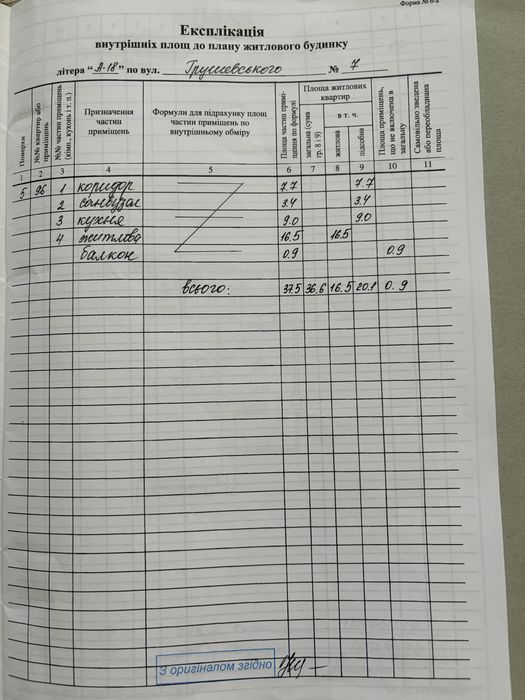 Форма № 6-а
Експлікація
внутрішніх площ до плану житлового будинку
літера "А-18" по вул. Грушевського № 7
Поверхи
№№ квартир або приміщень
№№ частин приміщень (кімн., кухонь і т. п.)
Призначення частин приміщень
Формули для підрахунку площ частин приміщень по внутрішньому обміру
Площа частин приміщення по формулі
Площа житлових квартир
загальна (сума гр. 8 і 9)
в т. ч.
житлова
підсобна
Площа приміщень, що не включена в загальну
Самовільно зведена або переобладнана площа
1 2 3 4 5 6 7 8 9 10 11
5 96 1 коридор 7.7 7.7
2 санвузол 3.4 3.4
3 кухня 9.0 9.0
4 житлова 16.5 16.5
балкон 0.9 0.9
всього: 37.5 36.6 16.5 20.1 0.9
З оригіналом згідно